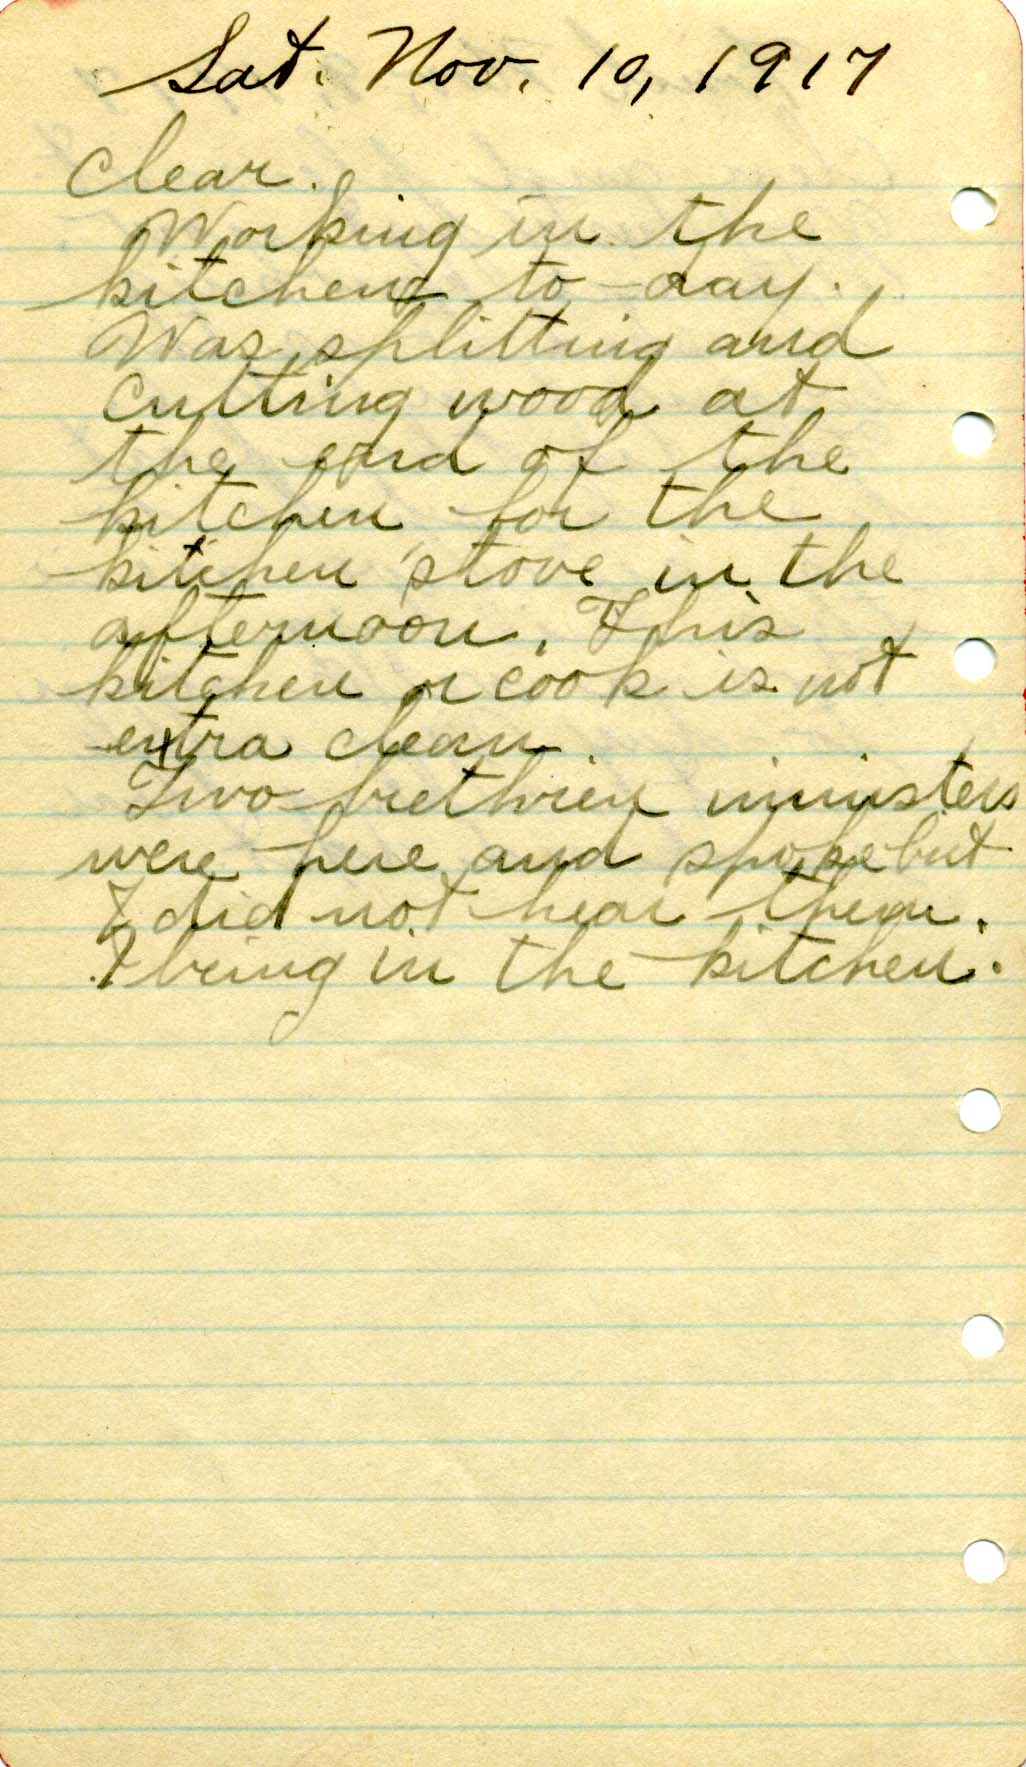 Sat. Nov. 10, 1917
Clear.
Working in the
kitchen to-day.
Was splitting and
cutting wood at
the end of the
kitchen for the
kitchen stove in the
afternoon. This
kitchen or cook is not
extra clean.
Two brethren ministers
were here and spoke but
I did not hear them.
I being in the kitchen.